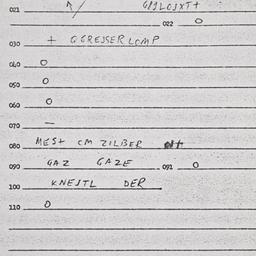 021
022 O
030 + GGREJSER LOMP
040 O
050 O
060 O
070 —
080 MEST CM ZILBER
090 GAZ GAZE 091 O
100 KNESTL DER
110 O